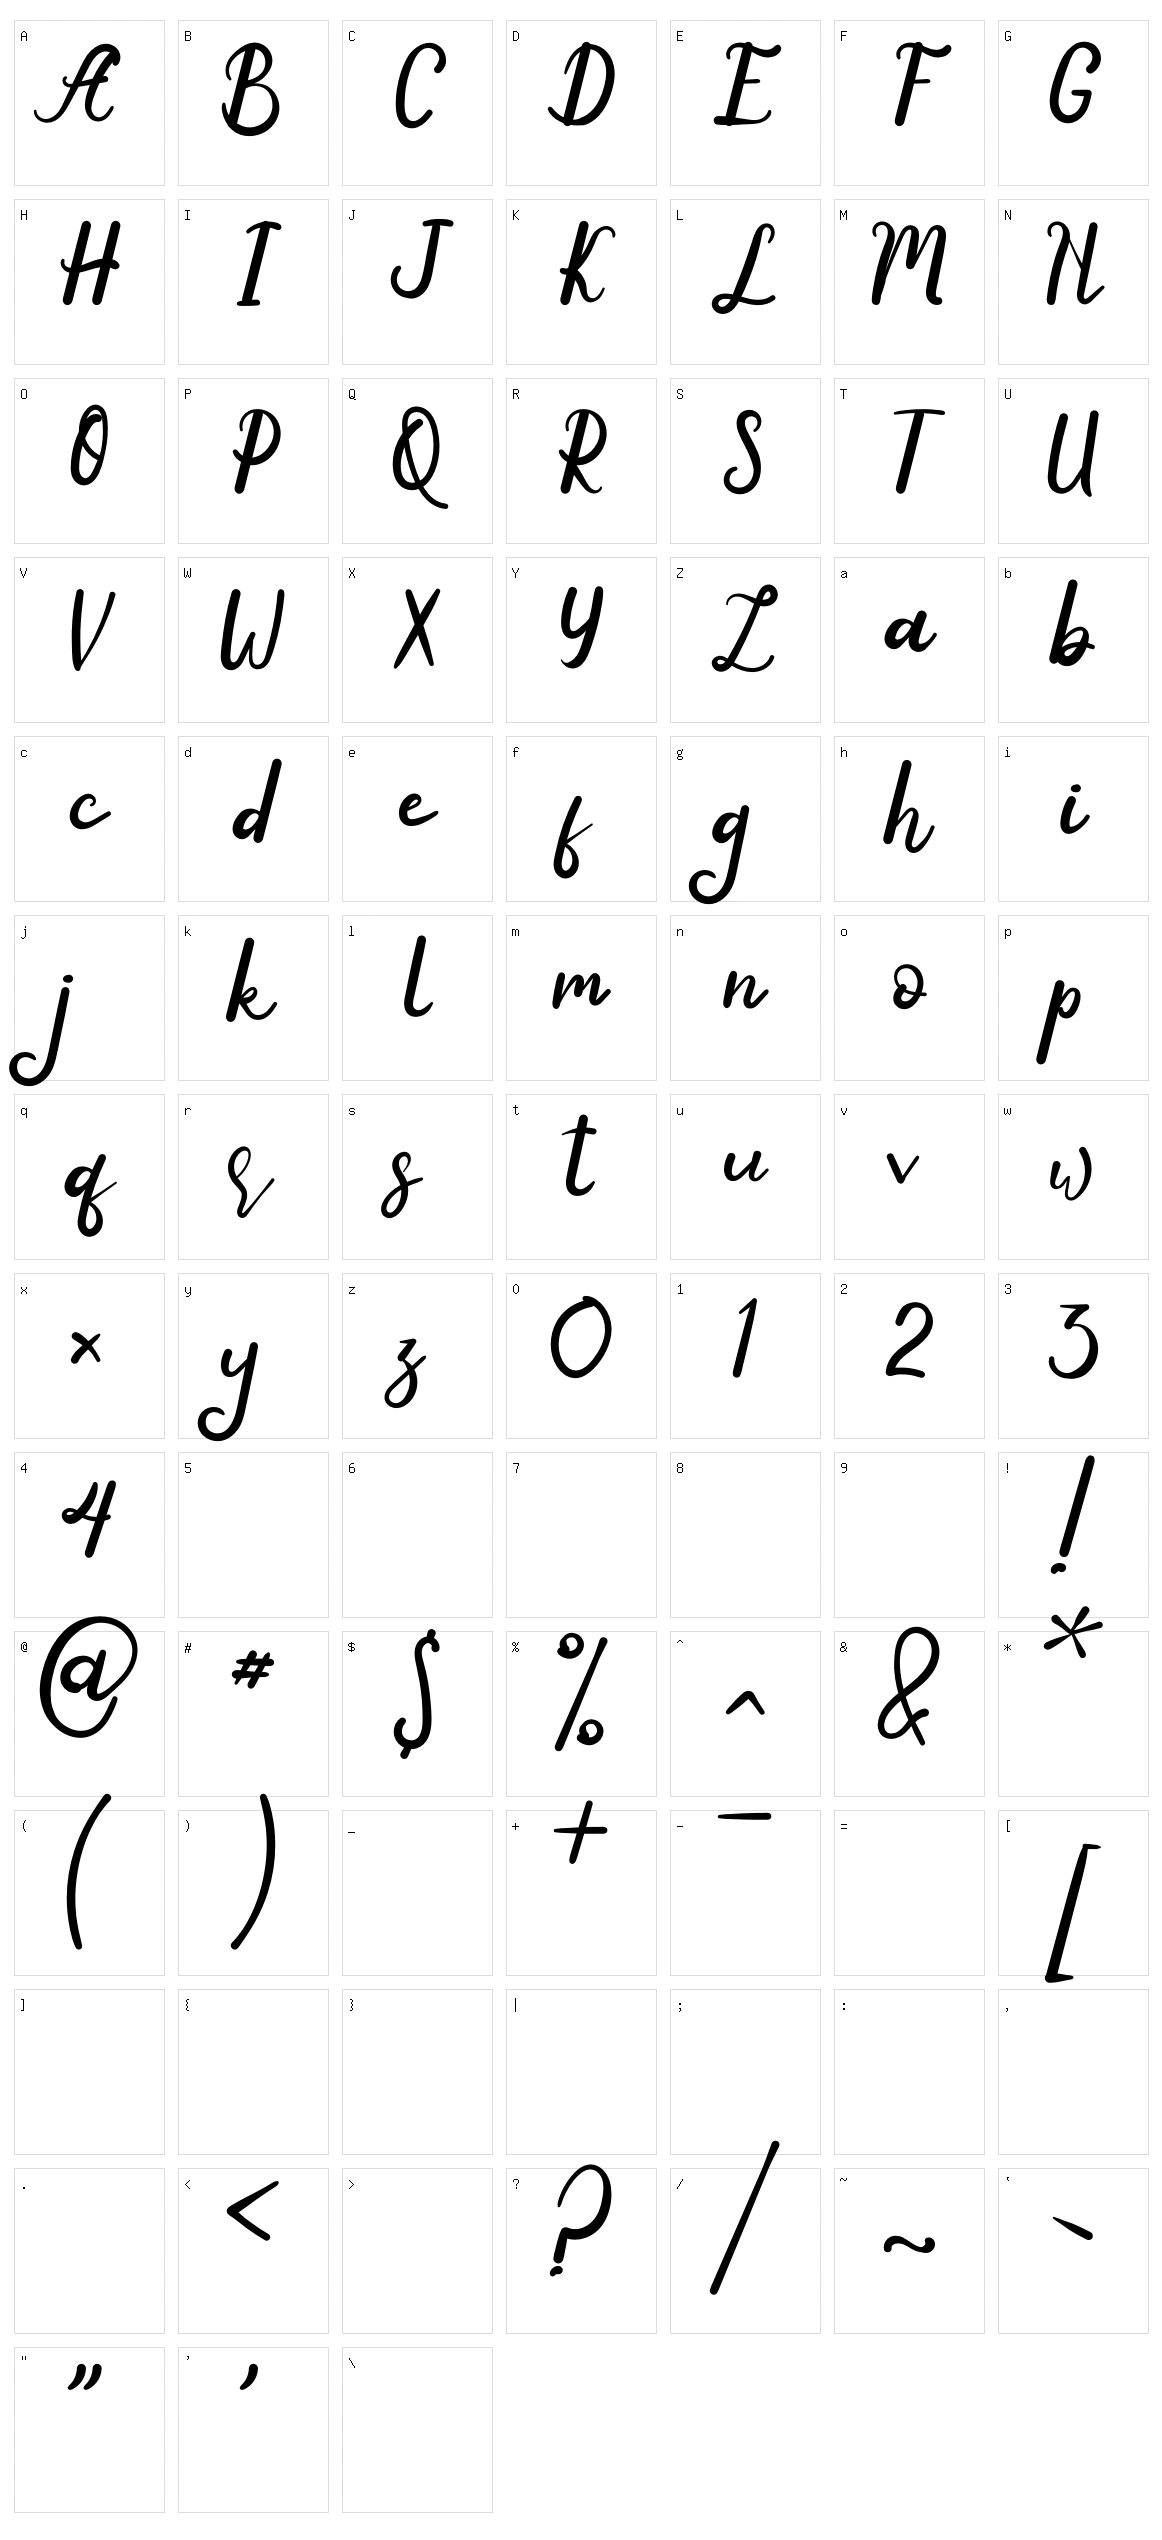 A B C D E F G
A B C D E F G
H I J K L M N
H I J K L M N
O P Q R S T U
O P Q R S T U
V W X Y Z a b
V W X Y Z a b
c d e f g h i
c d e f g h i
j k l m n o p
j k l m n o p
q r s t u v w
q r s t u v w
x y z 0 1 2 3
x y z 0 1 2 3
4 5 6 7 8 9 !
4 !
@ # $ % ^ & *
@ # $ % ^ & *
( ) _ + - = [
( ) + - [
] { } | ; : ,
. < > ? / ~ `
< ? / ~ `
" ' \
" '